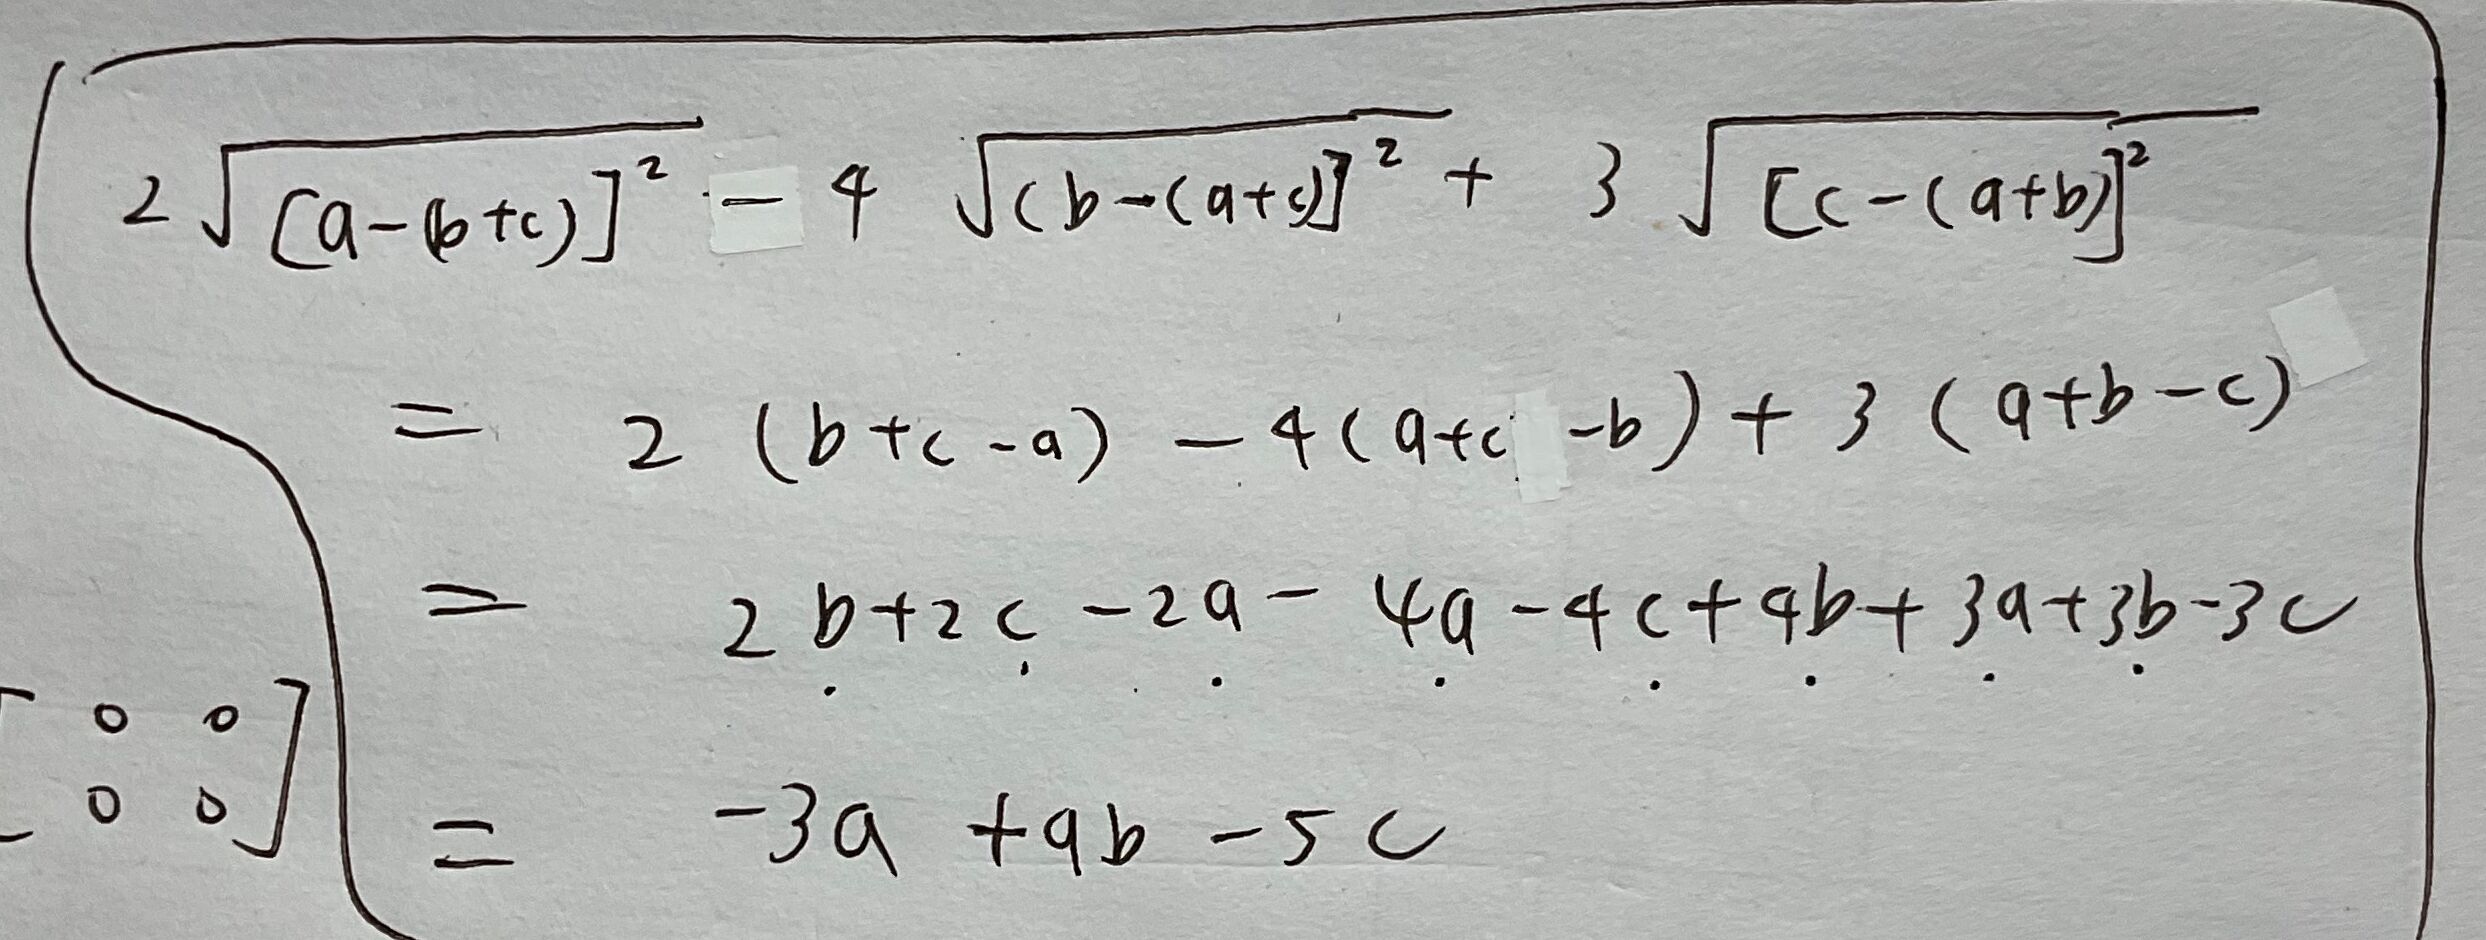 2√[a-(b+c)]² - 4√(b-(a+c)]² + 3√[c-(a+b)]²
= 2(b+c-a) - 4(a+c-b) + 3(a+b-c)
= 2b+2c-2a-4a-4c+4b+3a+3b-3c
[0 0
0 0]
= -3a+9b-5c